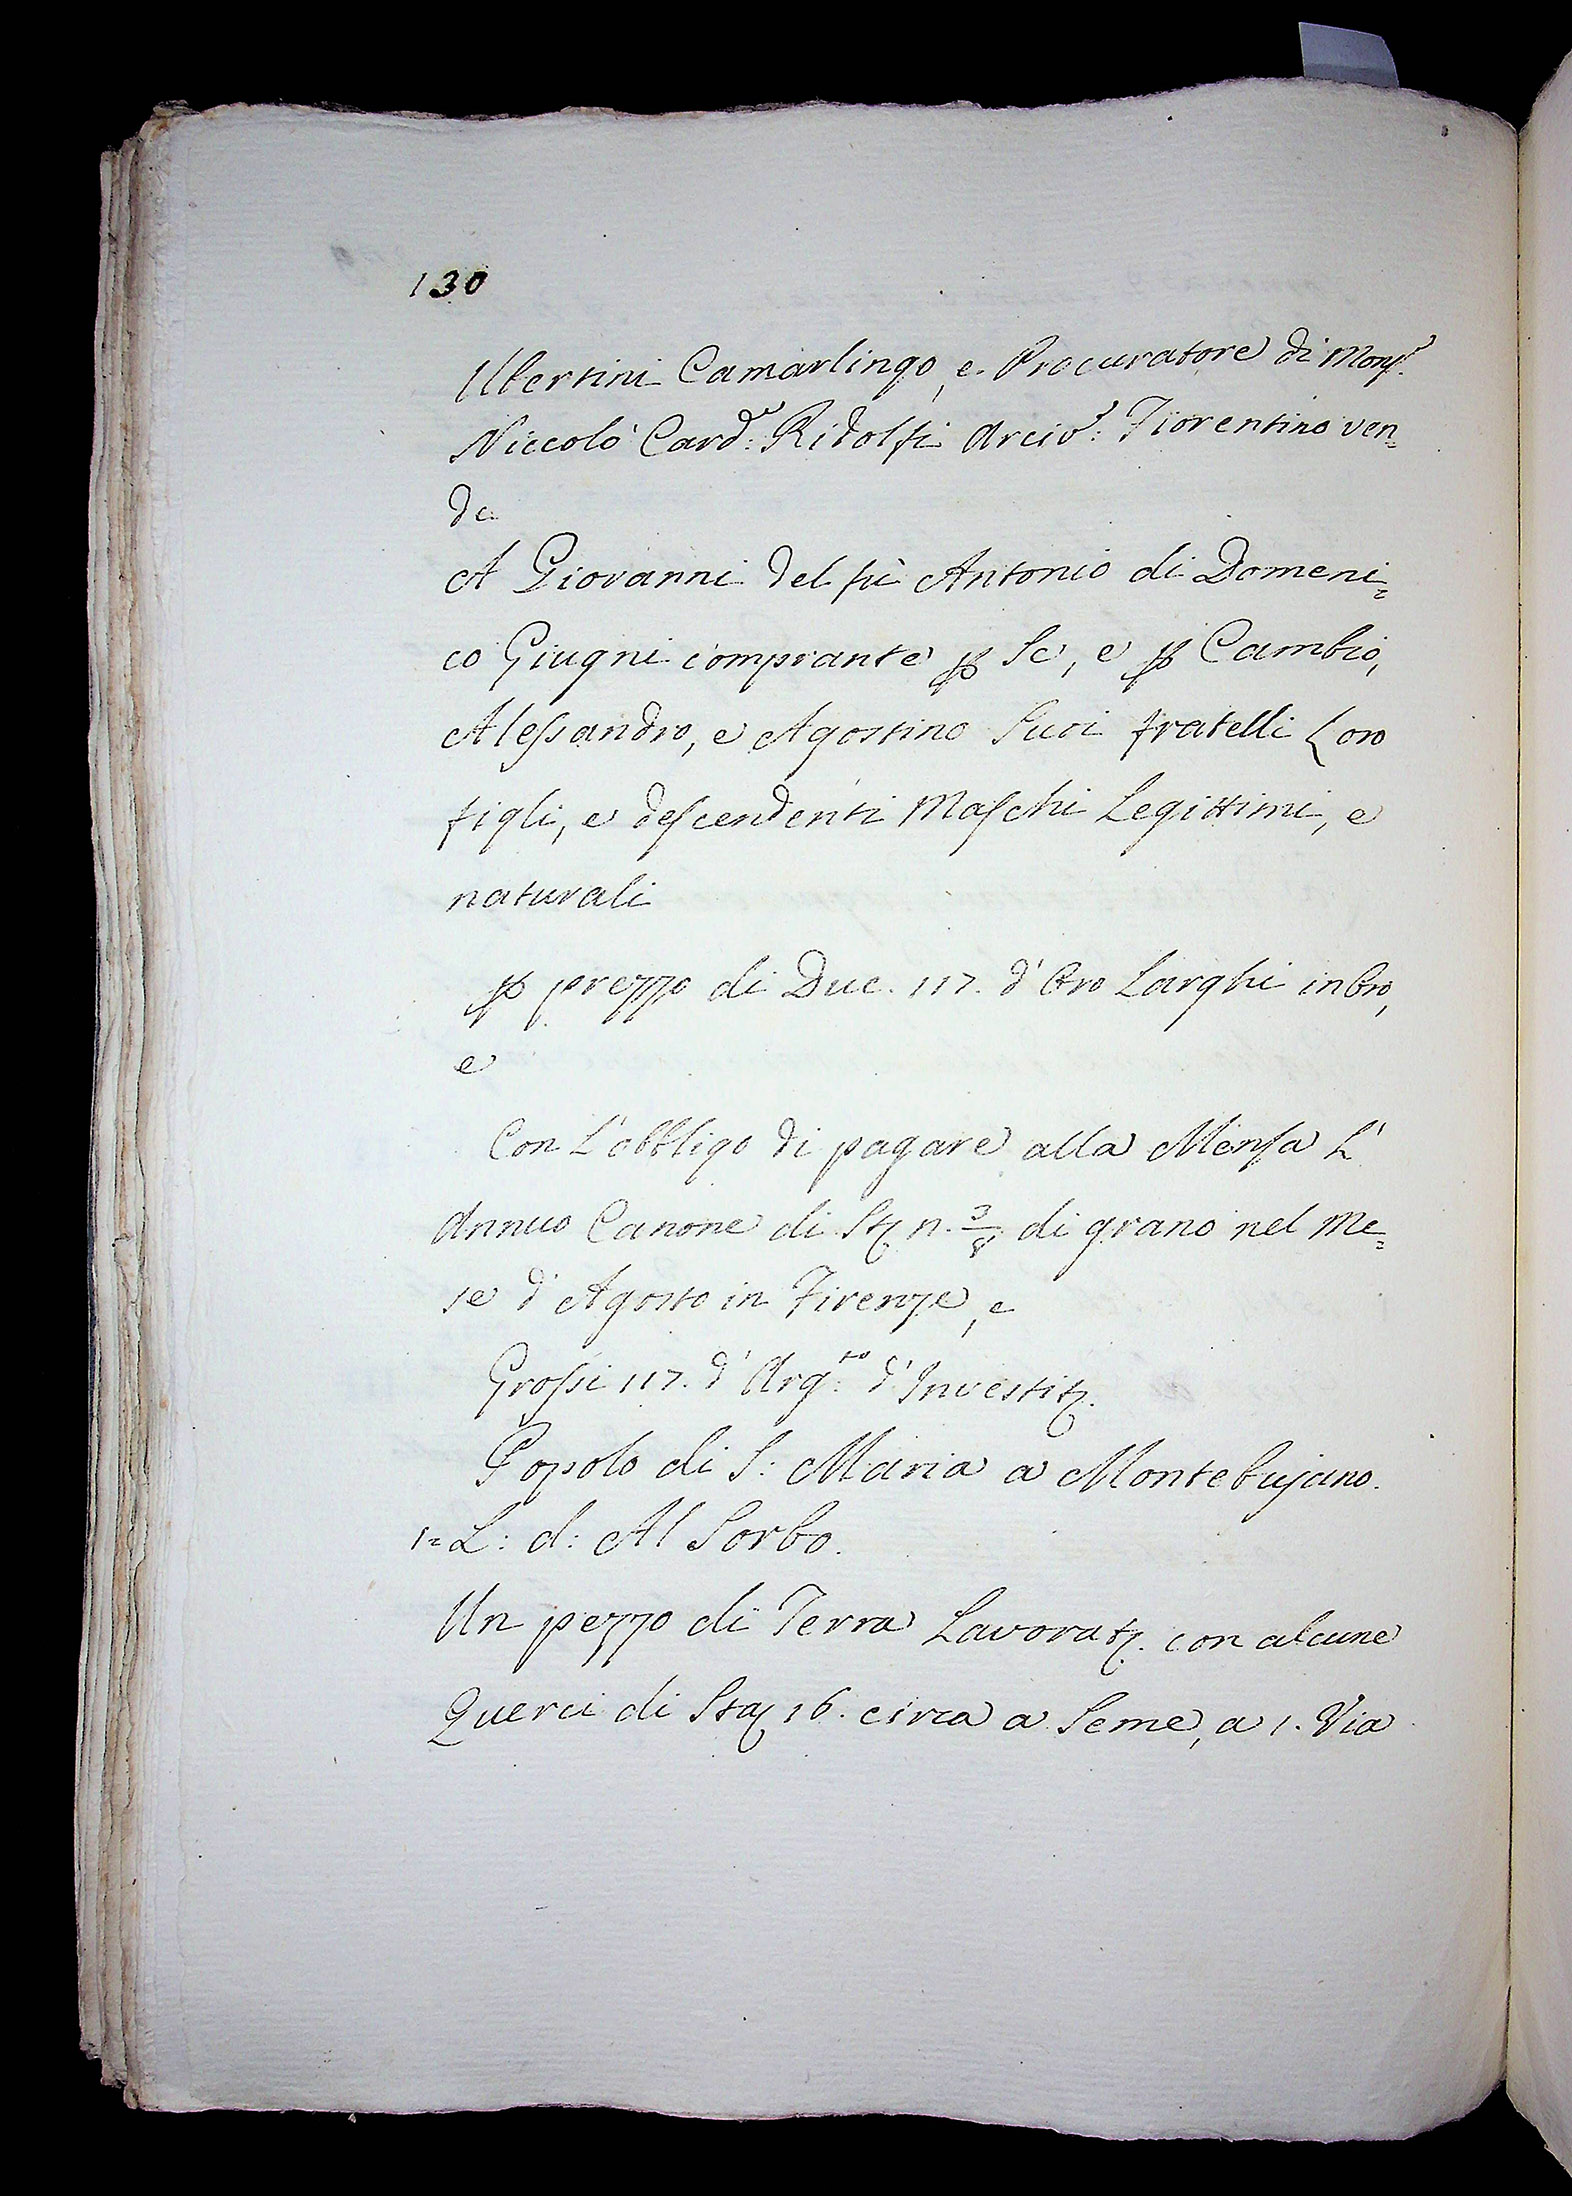 130
Ubertini Camarlingo, e Procuratore di Monsr.
Niccolò Card:le Ridolfi Arciv:o Fiorentino ven=
de
A Giovanni del fù Antonio di Domeni=
co Giugni comprante ꝑ Se, e ꝑ Cambio,
Aleſsandro, e Agostino Suoi fratelli Loro
figli, e deſcendenti Maſchi Legittimi, e
naturali
ꝑ prezzo di Duc. 117. d'Oro Larghi in Oro,
e
Con L'obbligo di pagare alla Menſa L'
Annuo Canone di St. n. 3/8 di grano nel Me=
se d'Agosto in Firenze, e
Groſsi 117. d'Arg:to d'Investit.
Popolo di S: Maria a Montebujano.
1= L: d: Al Sorbo.
Un pezzo di Terra Lavorat. con alcune
Querci di Sta 16. circa a Seme, a 1. Via